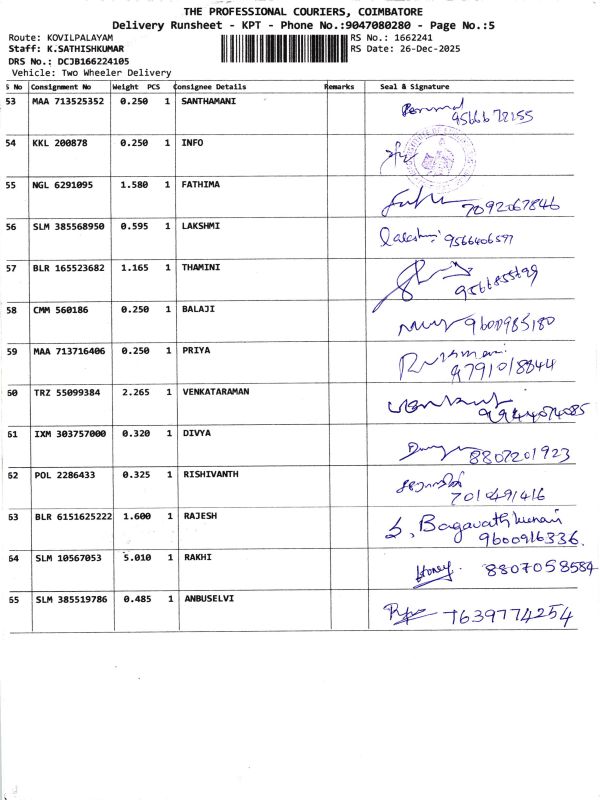 THE PROFESSIONAL COURIERS, COIMBATORE
Delivery Runsheet - KPT - Phone No.:9047080280 - Page No.:5
Route: KOVILPALAYAM RS No.: 1662241
Staff: K.SATHISHKUMAR RS Date: 26-Dec-2025
DRS No.: DCJB166224105
Vehicle: Two Wheeler Delivery
S No Consignment No Weight PCS Consignee Details Remarks Seal & Signature
53 MAA 713525352 0.250 1 SANTHAMANI
54 KKL 200878 0.250 1 INFO
55 NGL 6291095 1.580 1 FATHIMA
7092067846
56 SLM 385568950 0.595 1 LAKSHMI
57 BLR 165523682 1.165 1 THAMINI
58 CMM 560186 0.250 1 BALAJI
9600985180
59 MAA 713716406 0.250 1 PRIYA
60 TRZ 55099384 2.265 1 VENKATARAMAN
61 IXM 303757000 0.320 1 DIVYA
8807201923
62 POL 2286433 0.325 1 RISHIVANTH
7010491416
63 BLR 6151625222 1.600 1 RAJESH
9600916336.
64 SLM 10567053 5.010 1 RAKHI
Honey. 8807058584
65 SLM 385519786 0.485 1 ANBUSELVI
7639774254